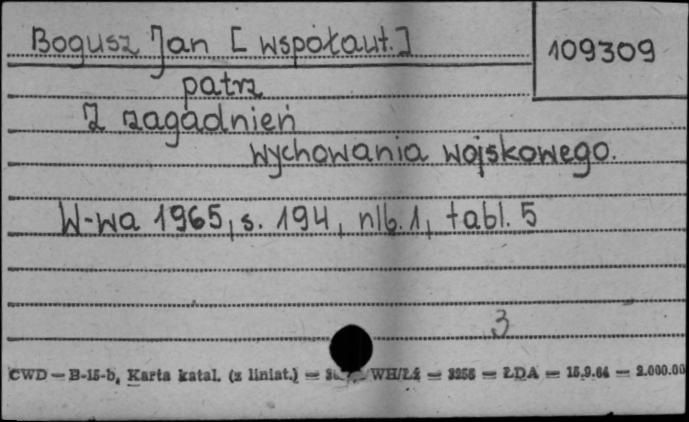 Bogusz Jan [współaut.]
109309
patrz
Z zagadnień
wychowania wojskowego.
W-wa 1965, s. 194, nlb. 1, tabl. 5
3
CWD — B-15-b, Karta katal. (z liniat.) — WH/Łź — 3256 — ŁDA — 15.9.64 — 2.000.00